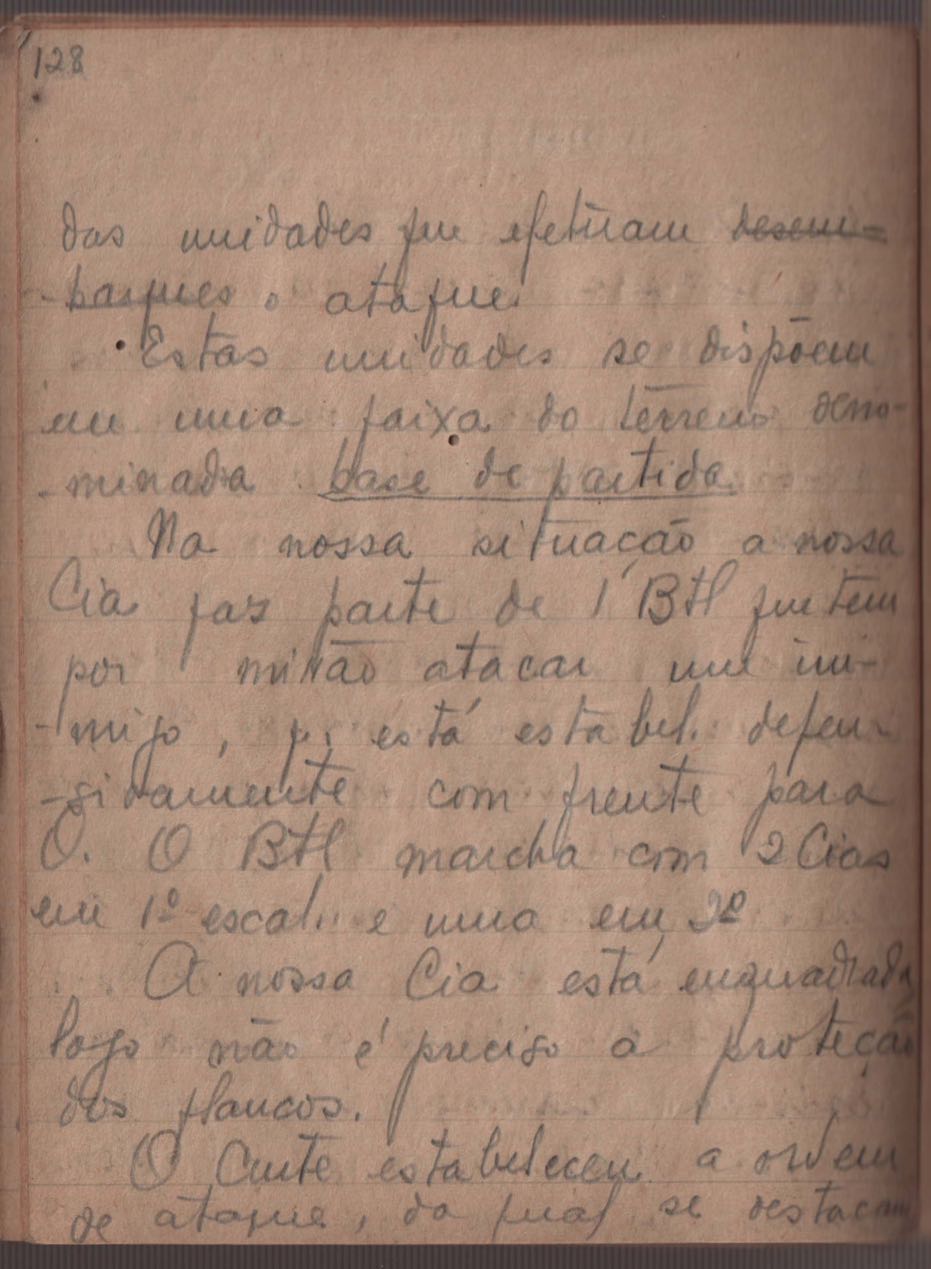 128
das unidades que efetuam desem-
-barques o ataque.
Estas unidades se dispõem
em uma faixa do terreno deno-
-minada base de partida
Na nossa situação a nossa
Cia faz parte de 1 Btl que tem
por missão atacar um ini-
-migo, q. está estabel. defen-
-sivamente com frente para
O. O Btl marcha com 2 Cias
em 1º escal. e uma em 2º
A nossa Cia está enquadrada
logo não é preciso a proteção
dos flancos.
O Cmte estabeleceu a ordem
de ataque, da qual se destacam